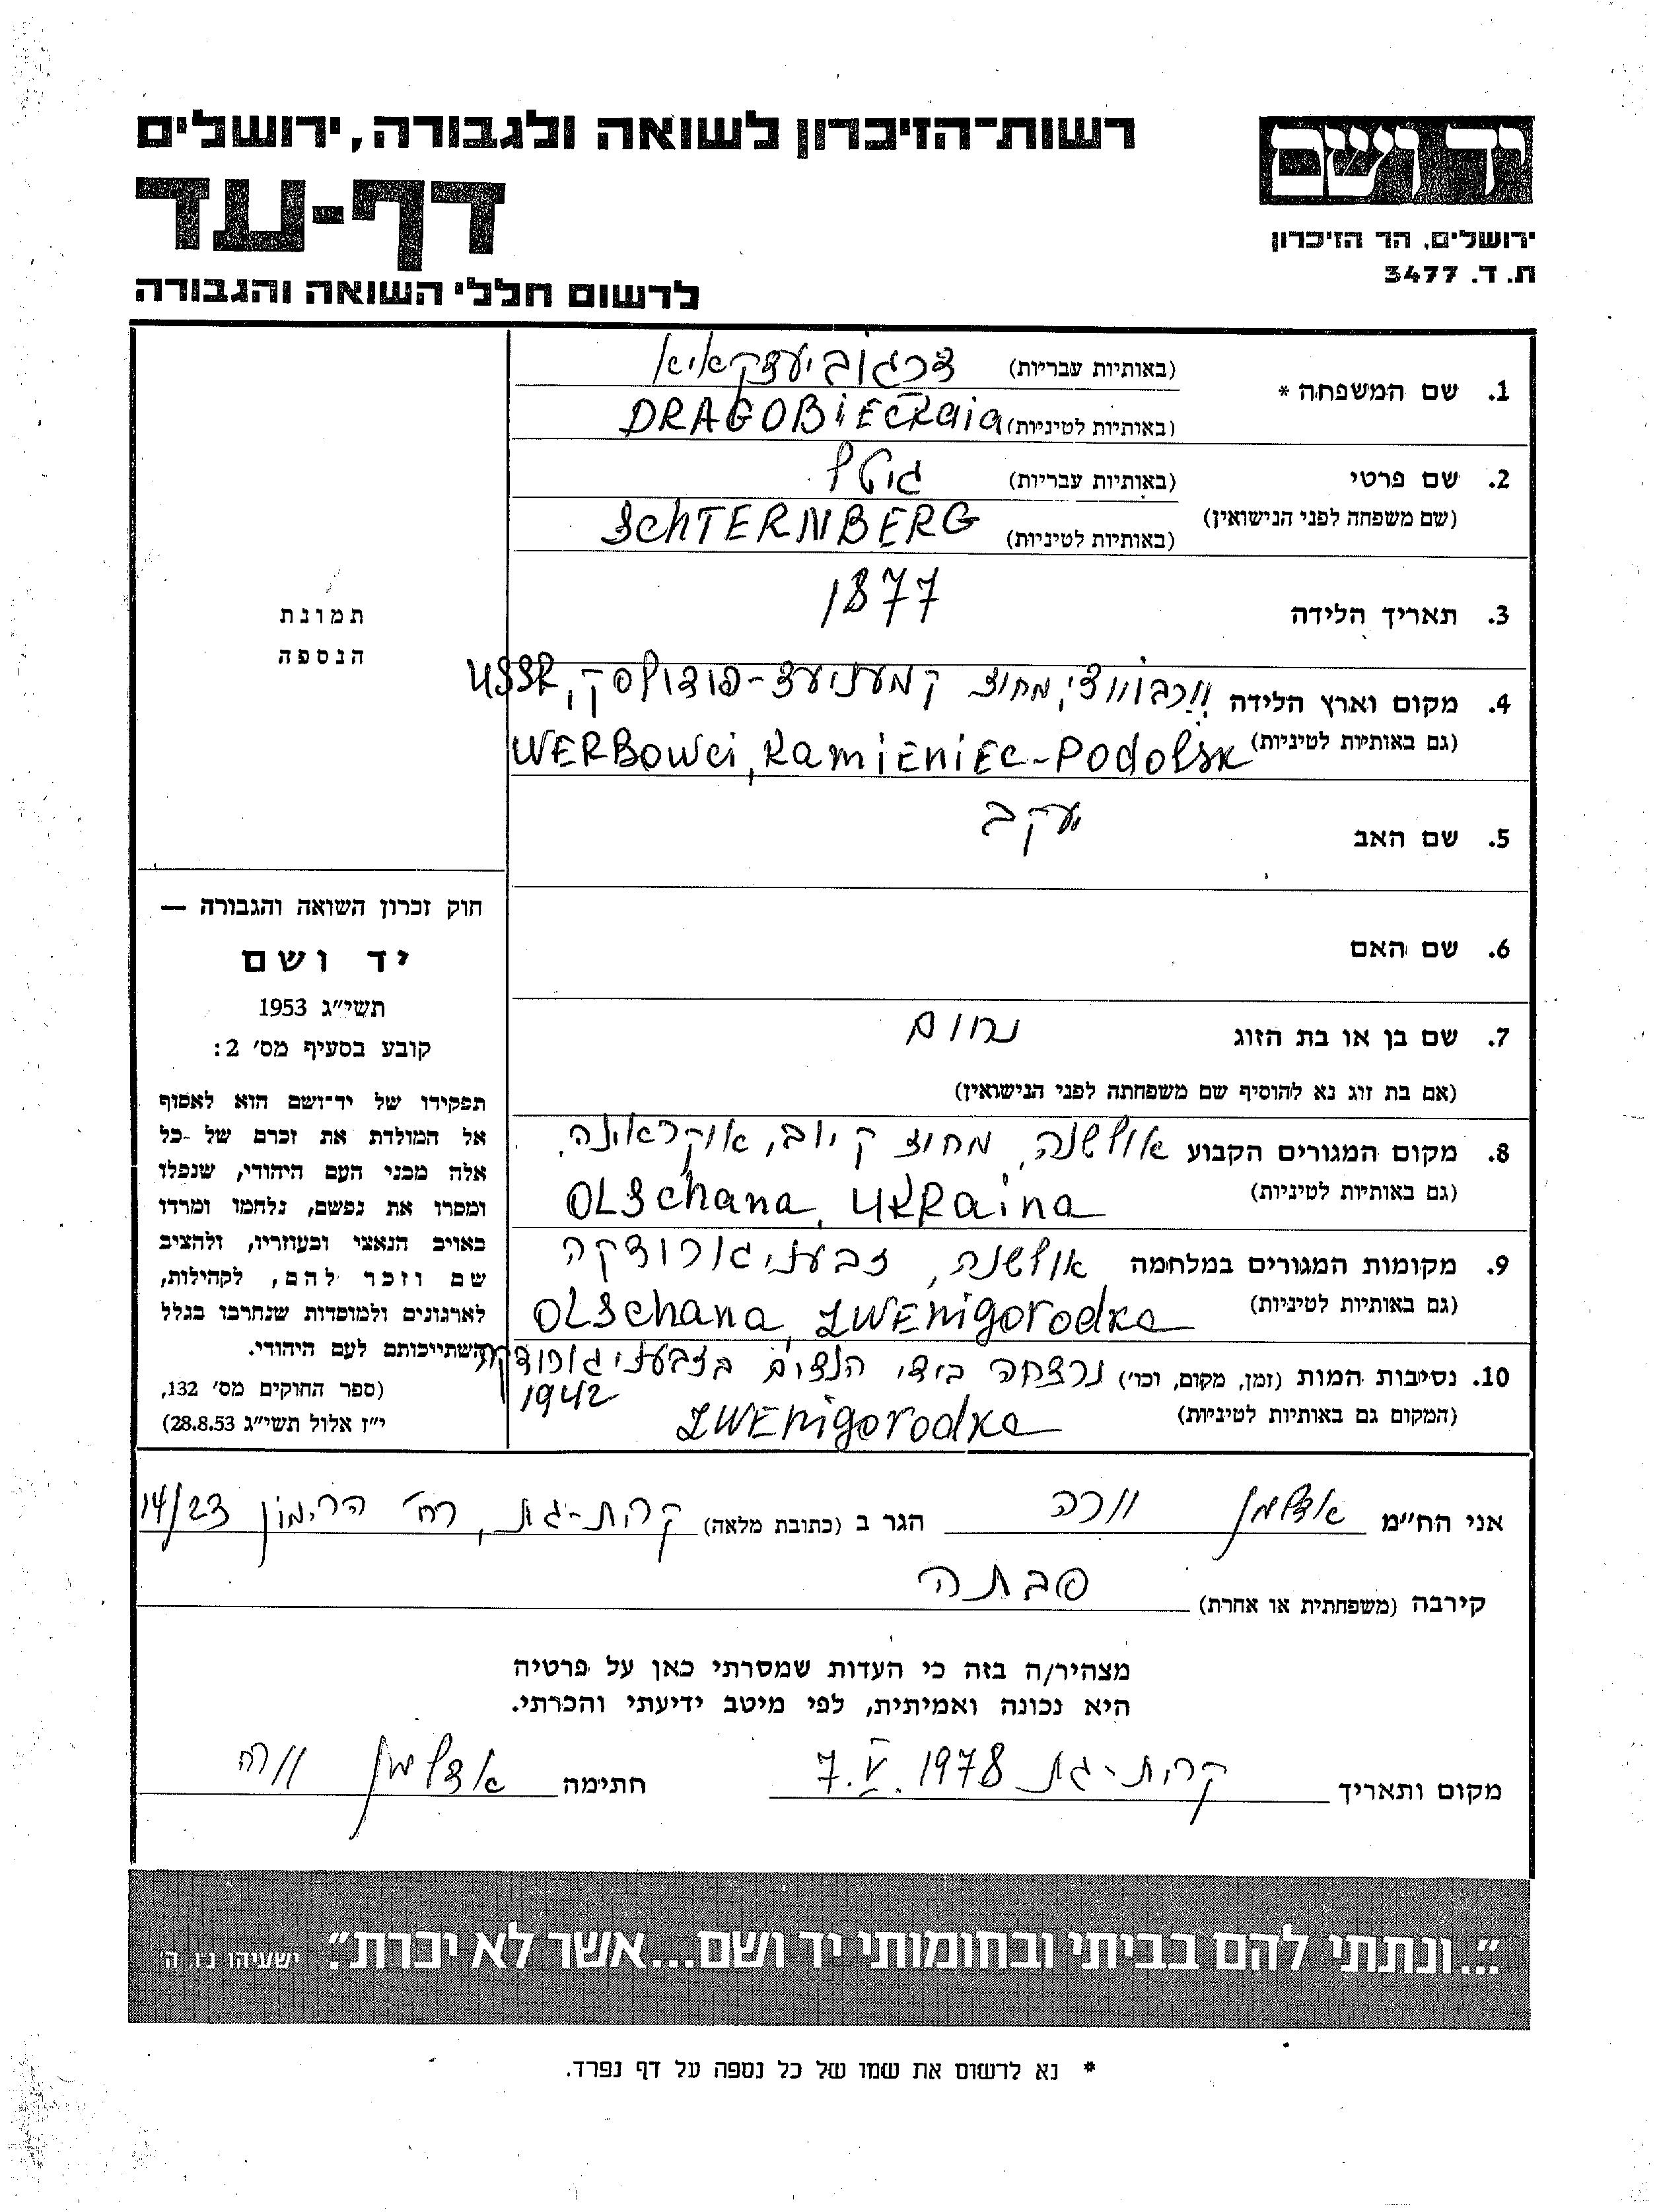 רשות־הזיכרון לשואה ולגבורה, ירושלים
דף-עד
לרשום חללי השואה והגבורה
יד ושם
ירושלים, הר הזיכרון
ת. ד. 3477
1. שם המשפחה * (באותיות עבריות) דרגוביעצקאיא
(באותיות לטיניות) DRAGOBiECKaia
2. שם פרטי (באותיות עבריות)
(שם משפחה לפני הנישואין) (באותיות לטיניות) SchTERNBERG
3. תאריך הלידה 1877
4. מקום וארץ הלידה מחוז קמעניעצ-פודולסק, USSR
(גם באותיות לטיניות) WERBOWCi, KamiENiEC-PodoLsK
5. שם האב יעקב
6. שם האם
7. שם בן או בת הזוג נחום
(אם בת זוג נא להוסיף שם משפחתה לפני הנישואין)
8. מקום המגורים הקבוע אולשנה, מחוז קיוב, אוקראינה.
(גם באותיות לטיניות) OLSchana, UKRaina
9. מקומות המגורים במלחמה אולשנה, זבעניגורודקה
(גם באותיות לטיניות) OLSchana, ZWENigorodka
10. נסיבות המות (זמן, מקום, וכו') נרצחה בידי הנצים בזבעניגורודקה
1942
(המקום גם באותיות לטיניות) ZWENigorodka
תמונת
הנספה
חוק זכרון השואה והגבורה —
יד ושם
תשי״ג 1953
קובע בסעיף מס׳ 2:
תפקידו של יד־ושם הוא לאסוף
אל המולדת את זכרם של כל
אלה מבני העם היהודי, שנפלו
ומסרו את נפשם, נלחמו ומרדו
באויב הנאצי ובעוזריו, ולהציב
שם וזכר להם, לקהילות,
לארגונים ולמוסדות שנחרבו בגלל
השתייכותם לעם היהודי.
(ספר החוקים מס׳ 132,
י״ז אלול תשי״ג 28.8.53)
אני הח״מ אדלמן וורה הגר ב (כתובת מלאה) קרית-גת, רח׳ הרימון 14/23
קירבה (משפחתית או אחרת) סבתה
מצהיר/ה בזה כי העדות שמסרתי כאן על פרטיה
היא נכונה ואמיתית, לפי מיטב ידיעתי והכרתי.
מקום ותאריך קרית-גת 7.V.1978 חתימה אדלמן וורה
״...ונתתי להם בביתי ובחומותי יד ושם...אשר לא יכרת״. ישעיהו נ״ו, ה׳
* נא לרשום את שמו של כל נספה על דף נפרד.